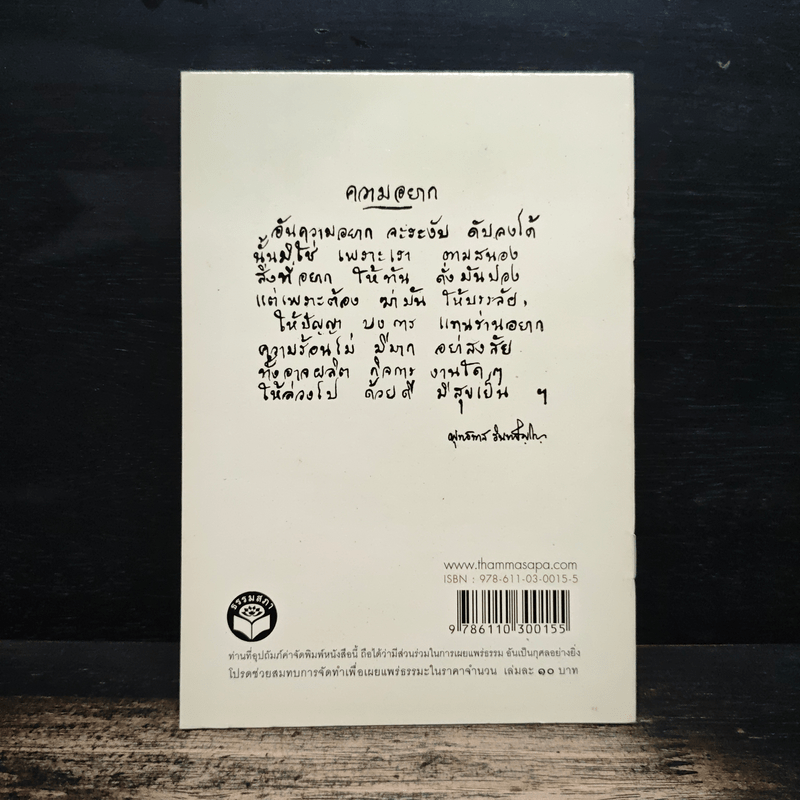 ความอยาก
อันความอยาก จะระงับ ดับลงได้
นั้นมิใช่ เพราะเรา ตามสนอง
สิ่งที่อยาก ให้ทัน ดั่งมันปอง
แต่เพราะต้อง ฆ่ามัน ให้บรรลัย,
ให้ปัญญา บงการ แทนร่านอยาก
ความร้อนไม่ มีมาก อย่าสงสัย
ทั้งอาจผลิต กิจการ งานใดๆ
ให้ล่วงไป ด้วยดี มีสุขเย็น ฯ
พุทธทาส อินทปัญโญ
www.thammasapa.com
ISBN : 978-611-03-0015-5
ธรรมสภา
9 786110 300155
ท่านที่อุปถัมภ์ค่าจัดพิมพ์หนังสือนี้ ถือได้ว่ามีส่วนร่วมในการเผยแพร่ธรรม อันเป็นกุศลอย่างยิ่ง
โปรดช่วยสมทบการจัดทำเพื่อเผยแพร่ธรรมะในราคาจำนวน เล่มละ ๑๐ บาท